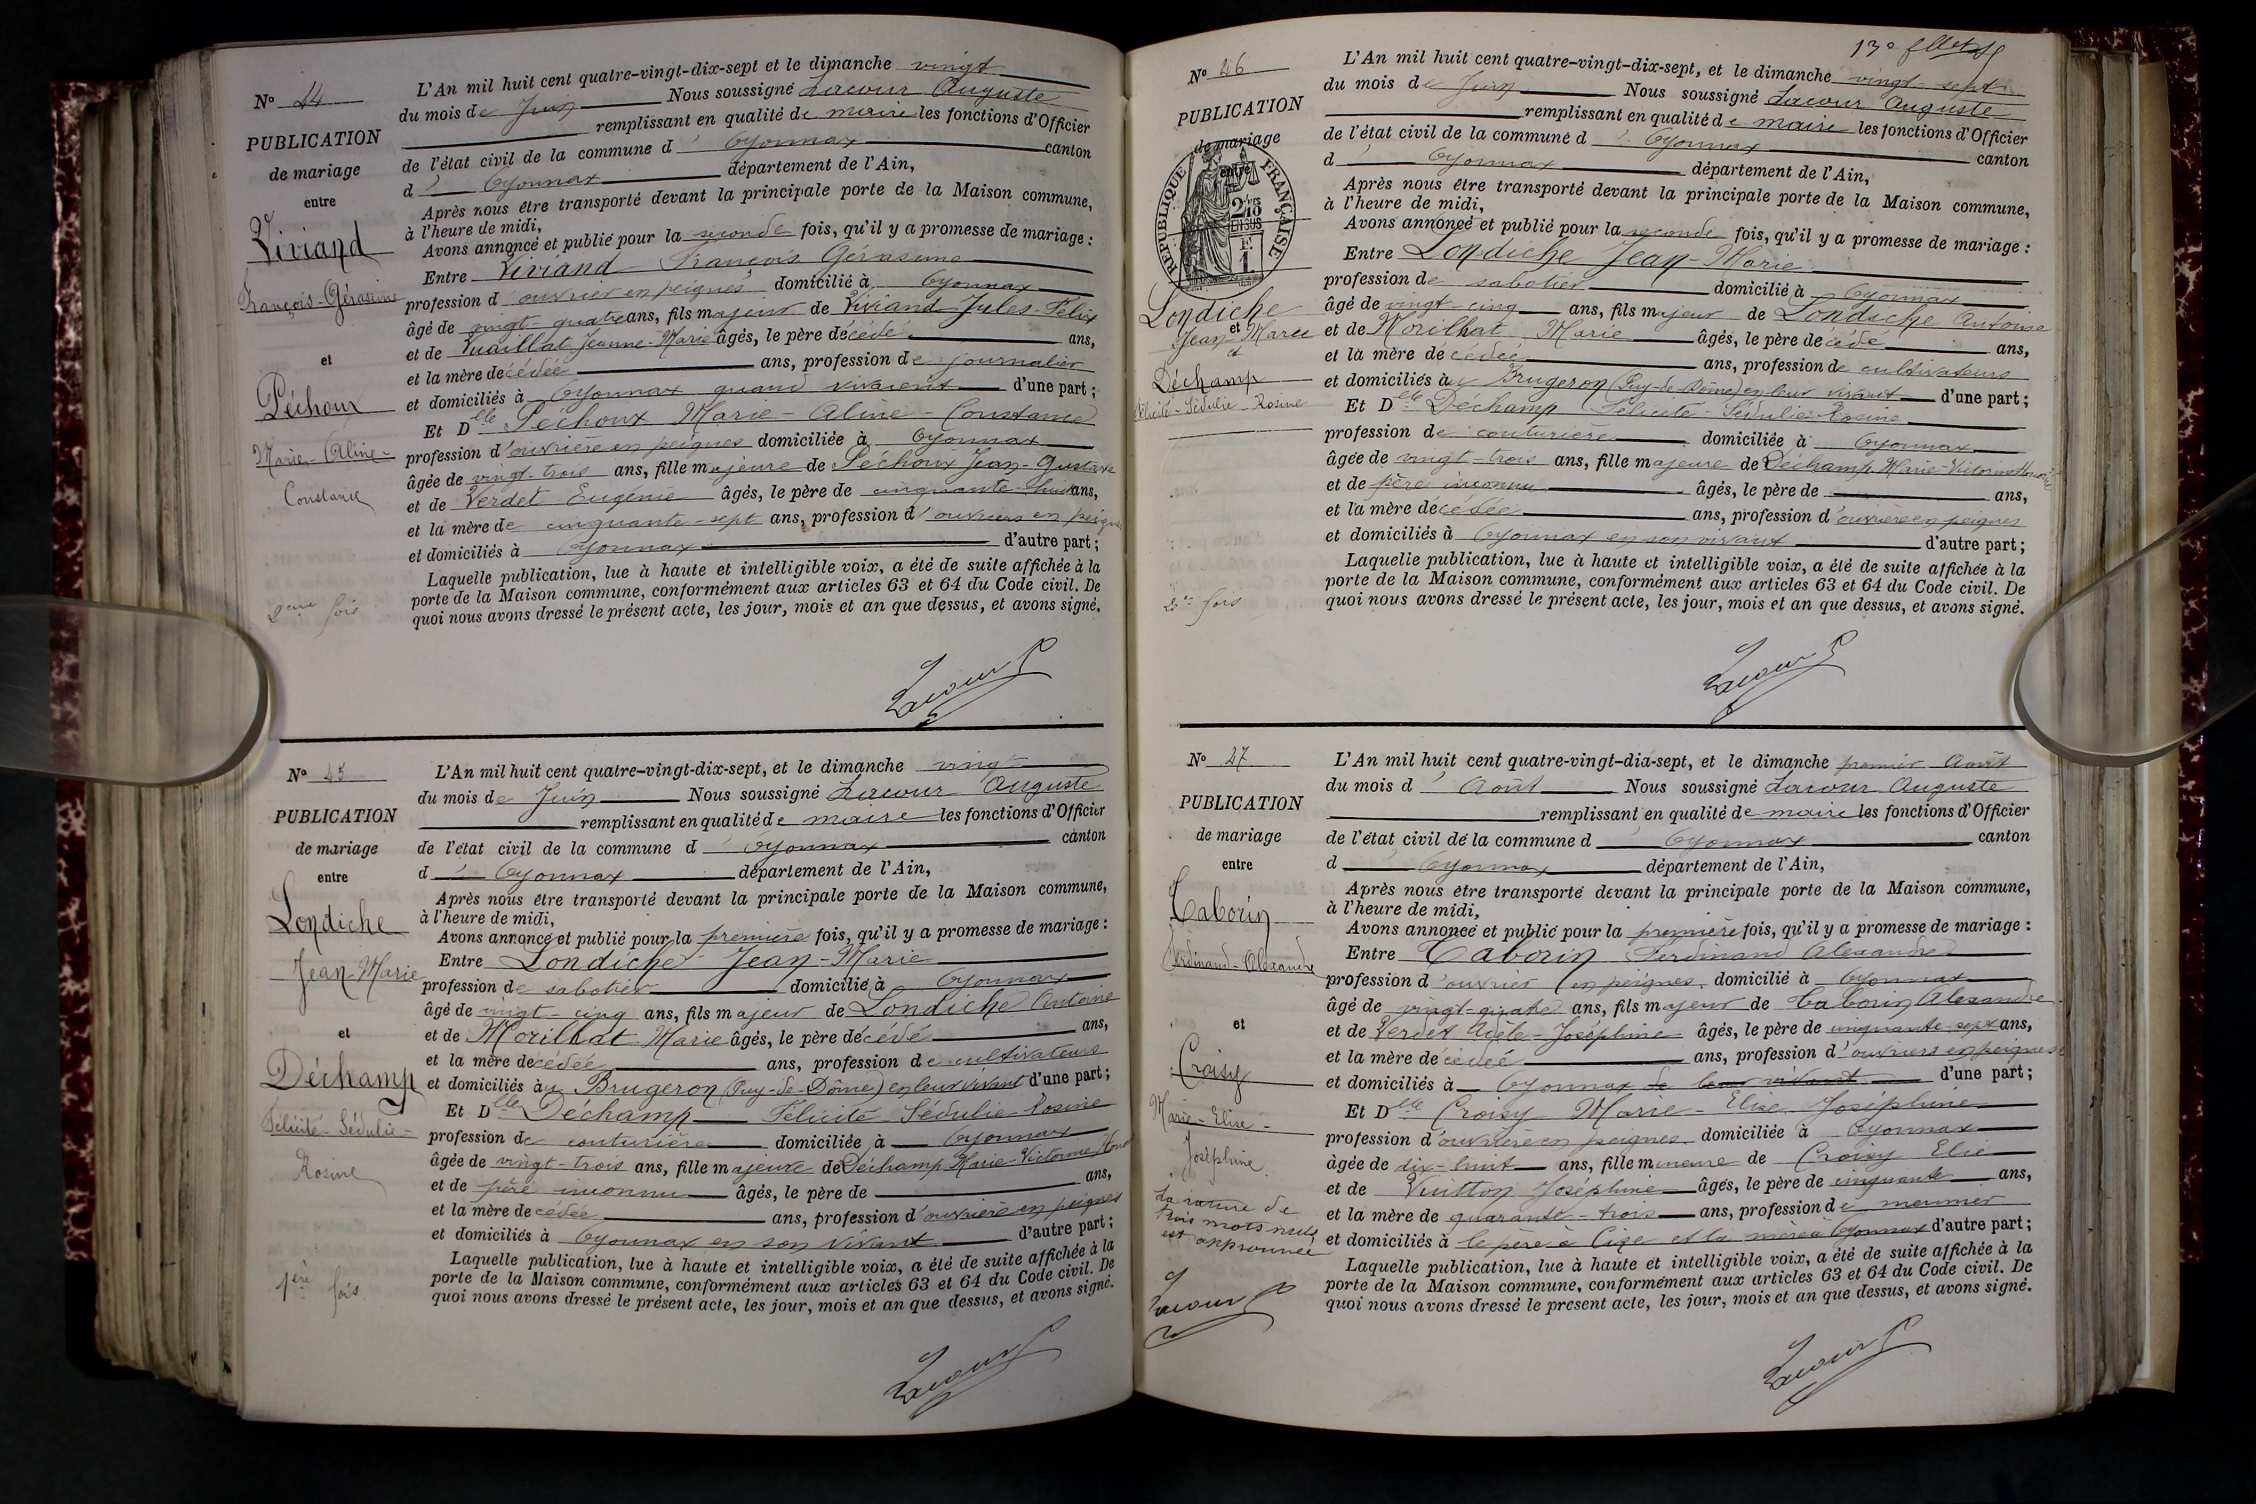 N° 44
PUBLICATION
de mariage
entre
Viviand
François-Gérasime
et
Péchoux
Marie-Aline-
Constance
2eme fois
L'An mil huit cent quatre-vingt-dix-sept et le dimanche vingt
du mois de Juin Nous soussigné Lacour Auguste
remplissant en qualité de maire les fonctions d'Officier
de l'état civil de la commune d' Oyonnax canton
d' Oyonnax département de l'Ain,
Après nous être transporté devant la principale porte de la Maison commune,
à l'heure de midi,
Avons annoncé et publié pour la seconde fois, qu'il y a promesse de mariage :
Entre Viviand François Gérasime
profession d'ouvrier en peignes domicilié à Oyonnax
âgé de vingt-quatre ans, fils majeur de Viviand Jules-Félix
et de Vuaillat Jeanne-Marie âgés, le père décédé ans,
et la mère décédée ans, profession de journalier
et domiciliés à Oyonnax quand vivaient d'une part ;
Et Dlle Péchoux Marie-Aline-Constance
profession d'ouvrière en peignes domiciliée à Oyonnax
âgée de vingt-trois ans, fille majeure de Péchoux Jean-Gustave
et de Verdet Eugénie âgés, le père de cinquante-huit ans,
et la mère de cinquante-sept ans, profession d'ouvriers en peignes
et domiciliés à Oyonnax d'autre part ;
Laquelle publication, lue à haute et intelligible voix, a été de suite affichée à la
porte de la Maison commune, conformément aux articles 63 et 64 du Code civil. De
quoi nous avons dressé le présent acte, les jour, mois et an que dessus, et avons signé.
Lacour
N° 45
PUBLICATION
de mariage
entre
Londiche
Jean-Marie
et
Déchamp
Félicité-Sédulie-
Rosine
1ère fois
L'An mil huit cent quatre-vingt-dix-sept, et le dimanche vingt
du mois de Juin Nous soussigné Lacour Auguste
remplissant en qualité de maire les fonctions d'Officier
de l'état civil de la commune d' Oyonnax canton
d' Oyonnax département de l'Ain,
Après nous être transporté devant la principale porte de la Maison commune,
à l'heure de midi,
Avons annoncé et publié pour la première fois, qu'il y a promesse de mariage :
Entre Londiche Jean-Marie
profession de sabotier domicilié à Oyonnax
âgé de vingt-cinq ans, fils majeur de Londiche Antoine
et de Morilhat Marie âgés, le père décédé ans,
et la mère décédée ans, profession de cultivateurs
et domiciliés au Brugeron (Puy-de-Dôme) en leur vivant d'une part ;
Et Dlle Déchamp Félicité Sédulie Rosine
profession de couturière domiciliée à Oyonnax
âgée de vingt-trois ans, fille majeure de Déchamp Marie-Victorine
et de père inconnu âgés, le père de ans,
et la mère décédée ans, profession d'ouvrière en peignes
et domiciliés à Oyonnax en son vivant d'autre part ;
Laquelle publication, lue à haute et intelligible voix, a été de suite affichée à la
porte de la Maison commune, conformément aux articles 63 et 64 du Code civil. De
quoi nous avons dressé le présent acte, les jour, mois et an que dessus, et avons signé.
Lacour
13e
N° 46
PUBLICATION
de mariage
entre
RÉPUBLIQUE FRANÇAISE
2/10
EN SUS
1F
Londiche
Jean-Marie
et
Déchamp
Félicité-Sédulie-Rosine
2e fois
L'An mil huit cent quatre-vingt-dix-sept, et le dimanche vingt-sept
du mois de Juin Nous soussigné Lacour Auguste
remplissant en qualité de maire les fonctions d'Officier
de l'état civil de la commune d' Oyonnax canton
d' Oyonnax département de l'Ain,
Après nous être transporté devant la principale porte de la Maison commune,
à l'heure de midi,
Avons annoncé et publié pour la seconde fois, qu'il y a promesse de mariage :
Entre Londiche Jean-Marie
profession de sabotier domicilié à Oyonnax
âgé de vingt-cinq ans, fils majeur de Londiche Antoine
et de Morilhat Marie âgés, le père décédé ans,
et la mère décédée ans, profession de cultivateurs
et domiciliés au Brugeron (Puy-de-Dôme) en leur vivant d'une part ;
Et Dlle Déchamp Félicité-Sédulie-Rosine
profession de couturière domiciliée à Oyonnax
âgée de vingt-trois ans, fille majeure de Déchamp Marie-Victorine
et de père inconnu âgés, le père de ans,
et la mère décédée ans, profession d'ouvrière en peignes
et domiciliés à Oyonnax en son vivant d'autre part ;
Laquelle publication, lue à haute et intelligible voix, a été de suite affichée à la
porte de la Maison commune, conformément aux articles 63 et 64 du Code civil. De
quoi nous avons dressé le présent acte, les jour, mois et an que dessus, et avons signé.
Lacour
N° 47
PUBLICATION
de mariage
entre
Taborin
Ferdinand-Alexandre
et
Croisy
Marie-Elise-
Joséphine
La rature de
trois mots nuls
est approuvée
Lacour
L'An mil huit cent quatre-vingt-dix-sept, et le dimanche premier Août
du mois d' Août Nous soussigné Lacour Auguste
remplissant en qualité de maire les fonctions d'Officier
de l'état civil de la commune d' Oyonnax canton
d' Oyonnax département de l'Ain,
Après nous être transporté devant la principale porte de la Maison commune,
à l'heure de midi,
Avons annoncé et publié pour la première fois, qu'il y a promesse de mariage :
Entre Taborin Ferdinand Alexandre
profession d'ouvrier en peignes domicilié à Oyonnax
âgé de vingt-quatre ans, fils majeur de Taborin Alexandre
et de Verdet Adèle-Joséphine âgés, le père de cinquante-sept ans,
et la mère décédée ans, profession d'ouvriers en peignes
et domiciliés à Oyonnax de leur vivant d'une part ;
Et Dlle Croisy Marie-Elise Joséphine
profession d'ouvrière en peignes domiciliée à Oyonnax
âgée de dix-huit ans, fille mineure de Croisy Elie
et de Vuitton Joséphine âgés, le père de cinquante ans,
et la mère de quarante-trois ans, profession de meunier
et domiciliés à le père à Cize et la mère à Oyonnax d'autre part ;
Laquelle publication, lue à haute et intelligible voix, a été de suite affichée à la
porte de la Maison commune, conformément aux articles 63 et 64 du Code civil. De
quoi nous avons dressé le présent acte, les jour, mois et an que dessus, et avons signé.
Lacour